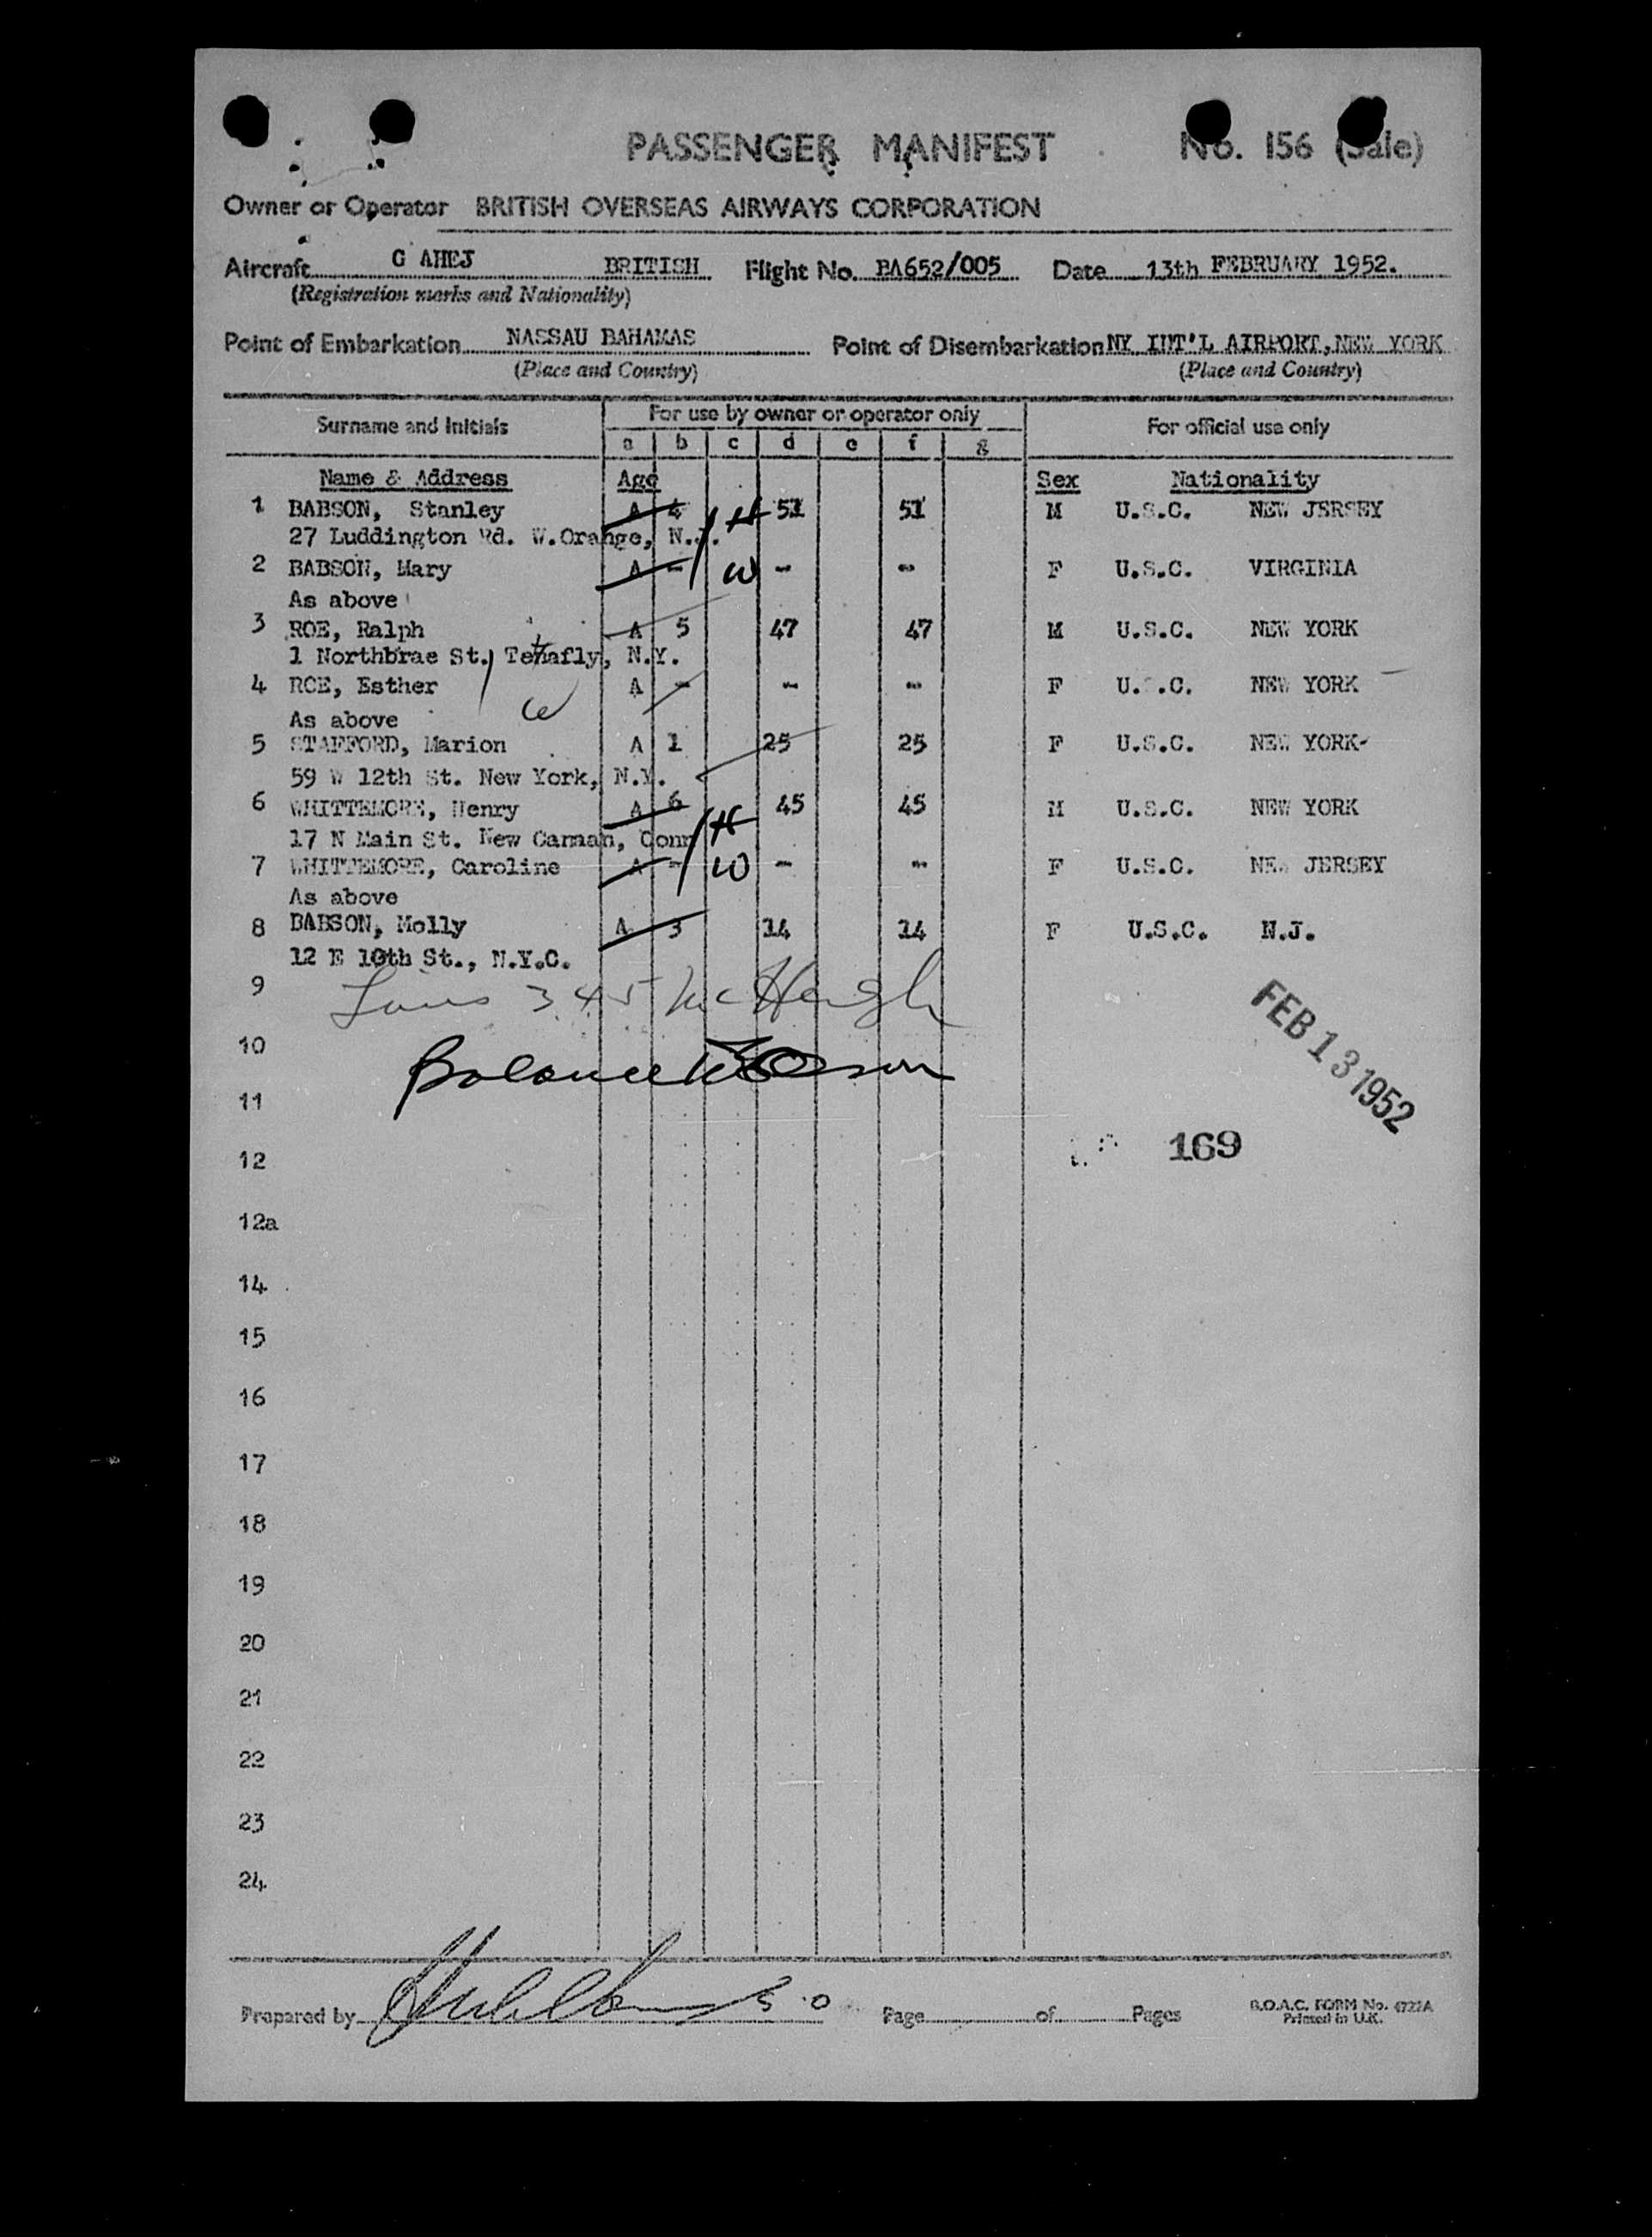 PASSENGER MANIFEST No. 156 (Sale)
Owner or Operator BRITISH OVERSEAS AIRWAYS CORPORATION
Aircraft G AHEJ BRITISH Flight No. BA652/005 Date 13th FEBRUARY 1952.
(Registration marks and Nationality)
Point of Embarkation NASSAU BAHAMAS Point of Disembarkation NY INT'L AIRPORT, NEW YORK
(Place and Country) (Place and Country)
Surname and Initials For use by owner or operator only For official use only
a b c d e f g
Name & Address Age Sex Nationality
1 BABSON, Stanley A 4 H 51 51 M U.S.C. NEW JERSEY
27 Luddington Rd. W.Orange, N.J.
2 BABSON, Mary A - W - - F U.S.C. VIRGINIA
As above
3 ROE, Ralph A 5 47 47 M U.S.C. NEW YORK
1 Northbrae St. Tenafly, N.Y.
4 ROE, Esther A - - - F U.S.C. NEW YORK
As above W
5 STAFFORD, Marion A 1 25 25 F U.S.C. NEW YORK
59 W 12th St. New York, N.Y.
6 WHITTEMORE, Henry A 6 45 45 M U.S.C. NEW YORK
17 N Main St. New Canaan, Conn H
7 WHITTEMORE, Caroline A - W - - F U.S.C. NEW JERSEY
As above
8 BABSON, Molly A 3 14 14 F U.S.C. N.J.
12 E 10th St., N.Y.C.
9 Lines 3 4 5 McHugh
FEB 13 1952
10 Balance
11
12 169
12a
14
15
16
17
18
19
20
21
22
23
24
Prepared by Page of Pages B.O.A.C. FORM No. 4722A
Printed in U.K.